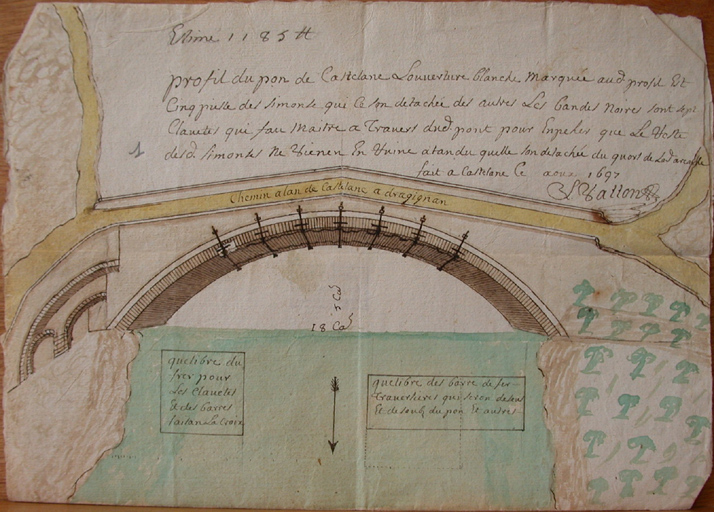 1185 #
profil du pon de Castelane Louverture blanche Marquée aud profil Et
Cinq piese des simonse qui se son detachée des autres Les bandes Noires sont sept
Clavetes qui fau Maitre a Travers dud pont pour Enpeches que Le Reste
desd. simonses Ne Vienen En Ruine atandu quelle son detachée du quors de Led
fait a Castelane Ce aoux 1697
Chemin alan de Castelane a dragignan
18 Ca
quelibre du
frer pour
Les Clavetes
Et des barres
fastan La Croix
quelibre des barre de fer
Traversieres qui seron desus
Et de souls du pon Et autres